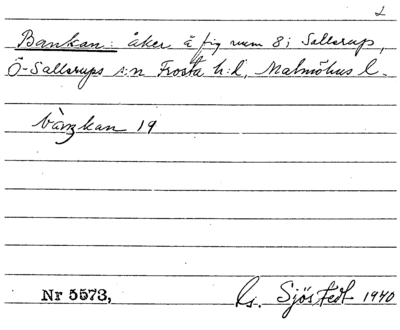 L
Bankan: åker å fig num 8 i Sallerup,
Ö-Sallerups s:n Frosta h:d, Malmöhus l.
bàŋkan 19
Nr 5573,
Is. Sjöstedt 1940